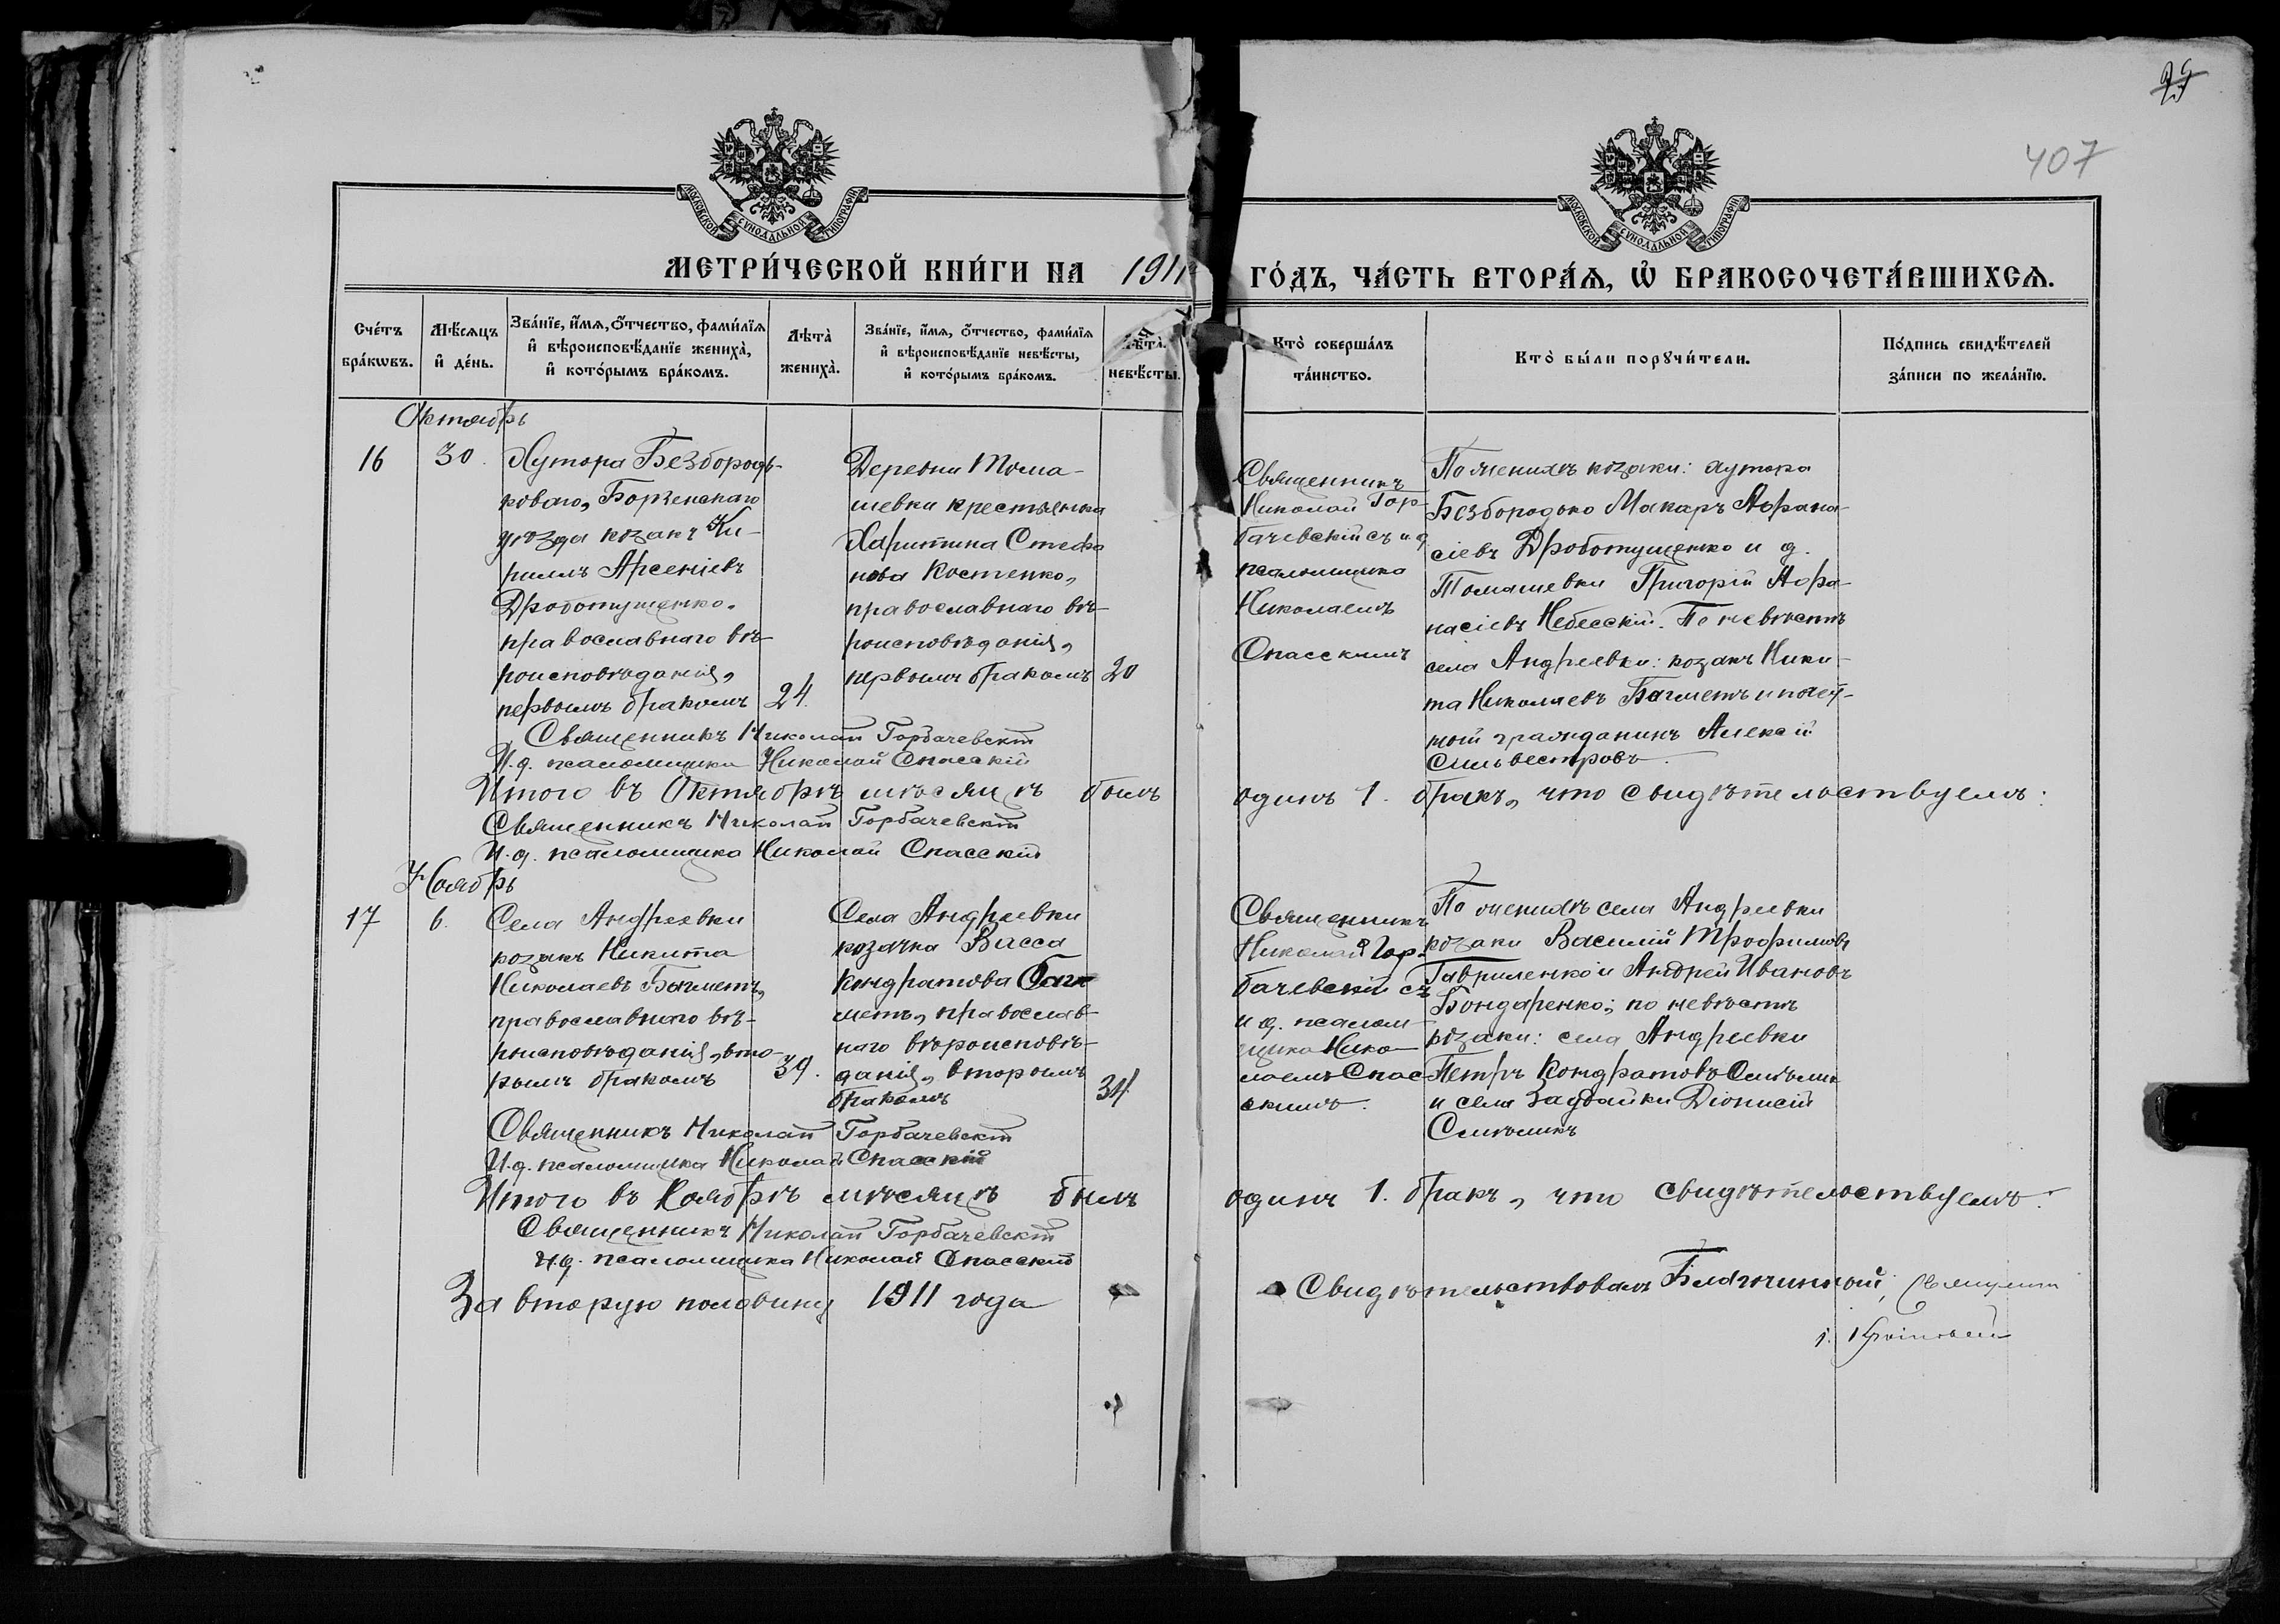 29
407
МОСКОВСКОЙ СУНОДАЛЬНОЙ ТИПОГРАФІИ
МОСКОВСКОЙ СУНОДАЛЬНОЙ ТИПОГРАФІИ
МЕТРИ́ЧЕСКОЙ КНИ́ГИ НА 1911
ГО́ДЪ, ЧА́СТЬ ВТОРА́Я, Ѡ҆ БРАКОСОЧЕТА́ВШИХСЯ.
Сче́тъ бра́кѡвъ.
Мѣ́сяцъ и҆ де́нь.
Зва́нїе, и҆́мя, ѻ҆́тчество, фами́лїя и҆ вѣроисповѣ́данїе жениха̀, и҆ кото́рымъ бра́комъ.
Лѣта̀ жениха̀.
Зва́нїе, и҆́мя, ѻ҆́тчество, фами́лїя и҆ вѣроисповѣ́данїе невѣ́сты, и҆ кото́рымъ бра́комъ.
Лѣта̀ невѣ́сты.
Кто̀ соверша́лъ та́инство.
Кто̀ бы́ли порꙋчи́тели.
По́дпись свидѣ́телей за́писи по жела́нїю.
Октябрь
16
30.
Хутора Безбородь-
коваго, Борзенскаго
уѣзда козакъ Ки-
риллъ Арсеніевъ
Дроботущенко.
православнаго вѣ-
роисповѣданія,
первымъ бракомъ
24.
Деревни Тома-
шевки крестьянка
Харитина Стефа
нова Костенко,
православнаго вѣ-
роисповѣданія,
первымъ бракомъ
20
Священникъ
Николай Гор-
бачевскій съ и. д.
псаломщика
Николаемъ
Спасскимъ
По женихѣ козаки: хутора
Безбородько Макаръ Афана-
сіевъ Дроботущенко и д.
Томашевки Григорій Афа-
насіевъ Небесскій. По невѣстѣ
села Андреевки: козакъ Ники-
та Николаевъ Багметъ и почет-
ный гражданинъ Алексѣй
Сильвестровъ.
Священникъ Николай Горбачевскій
И.д. псаломщика Николай Спасскій
Итого въ Октябрѣ мѣсяцѣ былъ одинъ 1. бракъ, что свидѣтельствуемъ:
Священникъ Николай Горбачевскій
И.д. псаломщика Николай Спасскій
Ноябрь
17
6.
Села Андреевки
козакъ Никита
Николаевъ Багметъ,
православнаго вѣ-
роисповѣданія, вто-
рымъ бракомъ
39.
Села Андреевки
козачка Васса
Кондратова Баг
метъ, православ-
наго вѣроисповѣ-
данія, вторымъ
бракомъ
34.
Священникъ
Николай Гор-
бачевскій съ
и д. псалом-
щика Нико-
лаемъ Спас-
скимъ.
По женихѣ села Андреевки
козаки Василій Трофимовъ
Гавриленко и Андрей Ивановъ
Бондаренко; по невѣстѣ
козаки: села Андреевки
Петръ Кондратовъ
и села Заудайки Діонисій
Священникъ Николай Горбачевскій
И.д. псаломщика Николай Спасскій
Итого въ Ноябрѣ мѣсяцѣ былъ одинъ 1. бракъ, что свидѣтельствуемъ:
Священникъ Николай Горбачевскій
И.д. псаломщика Николай Спасскій
За вторую половину 1911 года
Свидѣтельствовалъ Благочинный, Священникъ